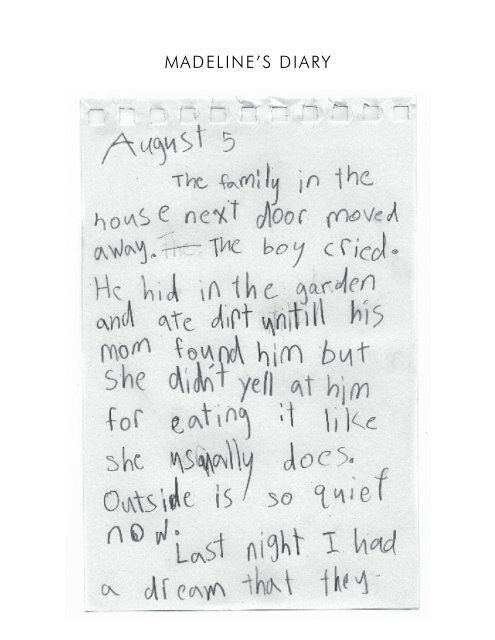 MADELINE'S DIARY
August 5
The family in the
house next door moved
away. — The boy cried.
He hid in the garden
and ate dirt unitill his
mom found him but
she didn't yell at him
for eating it like
she usually does.
Outside is so quiet
now.
Last night I had
a dream that they-